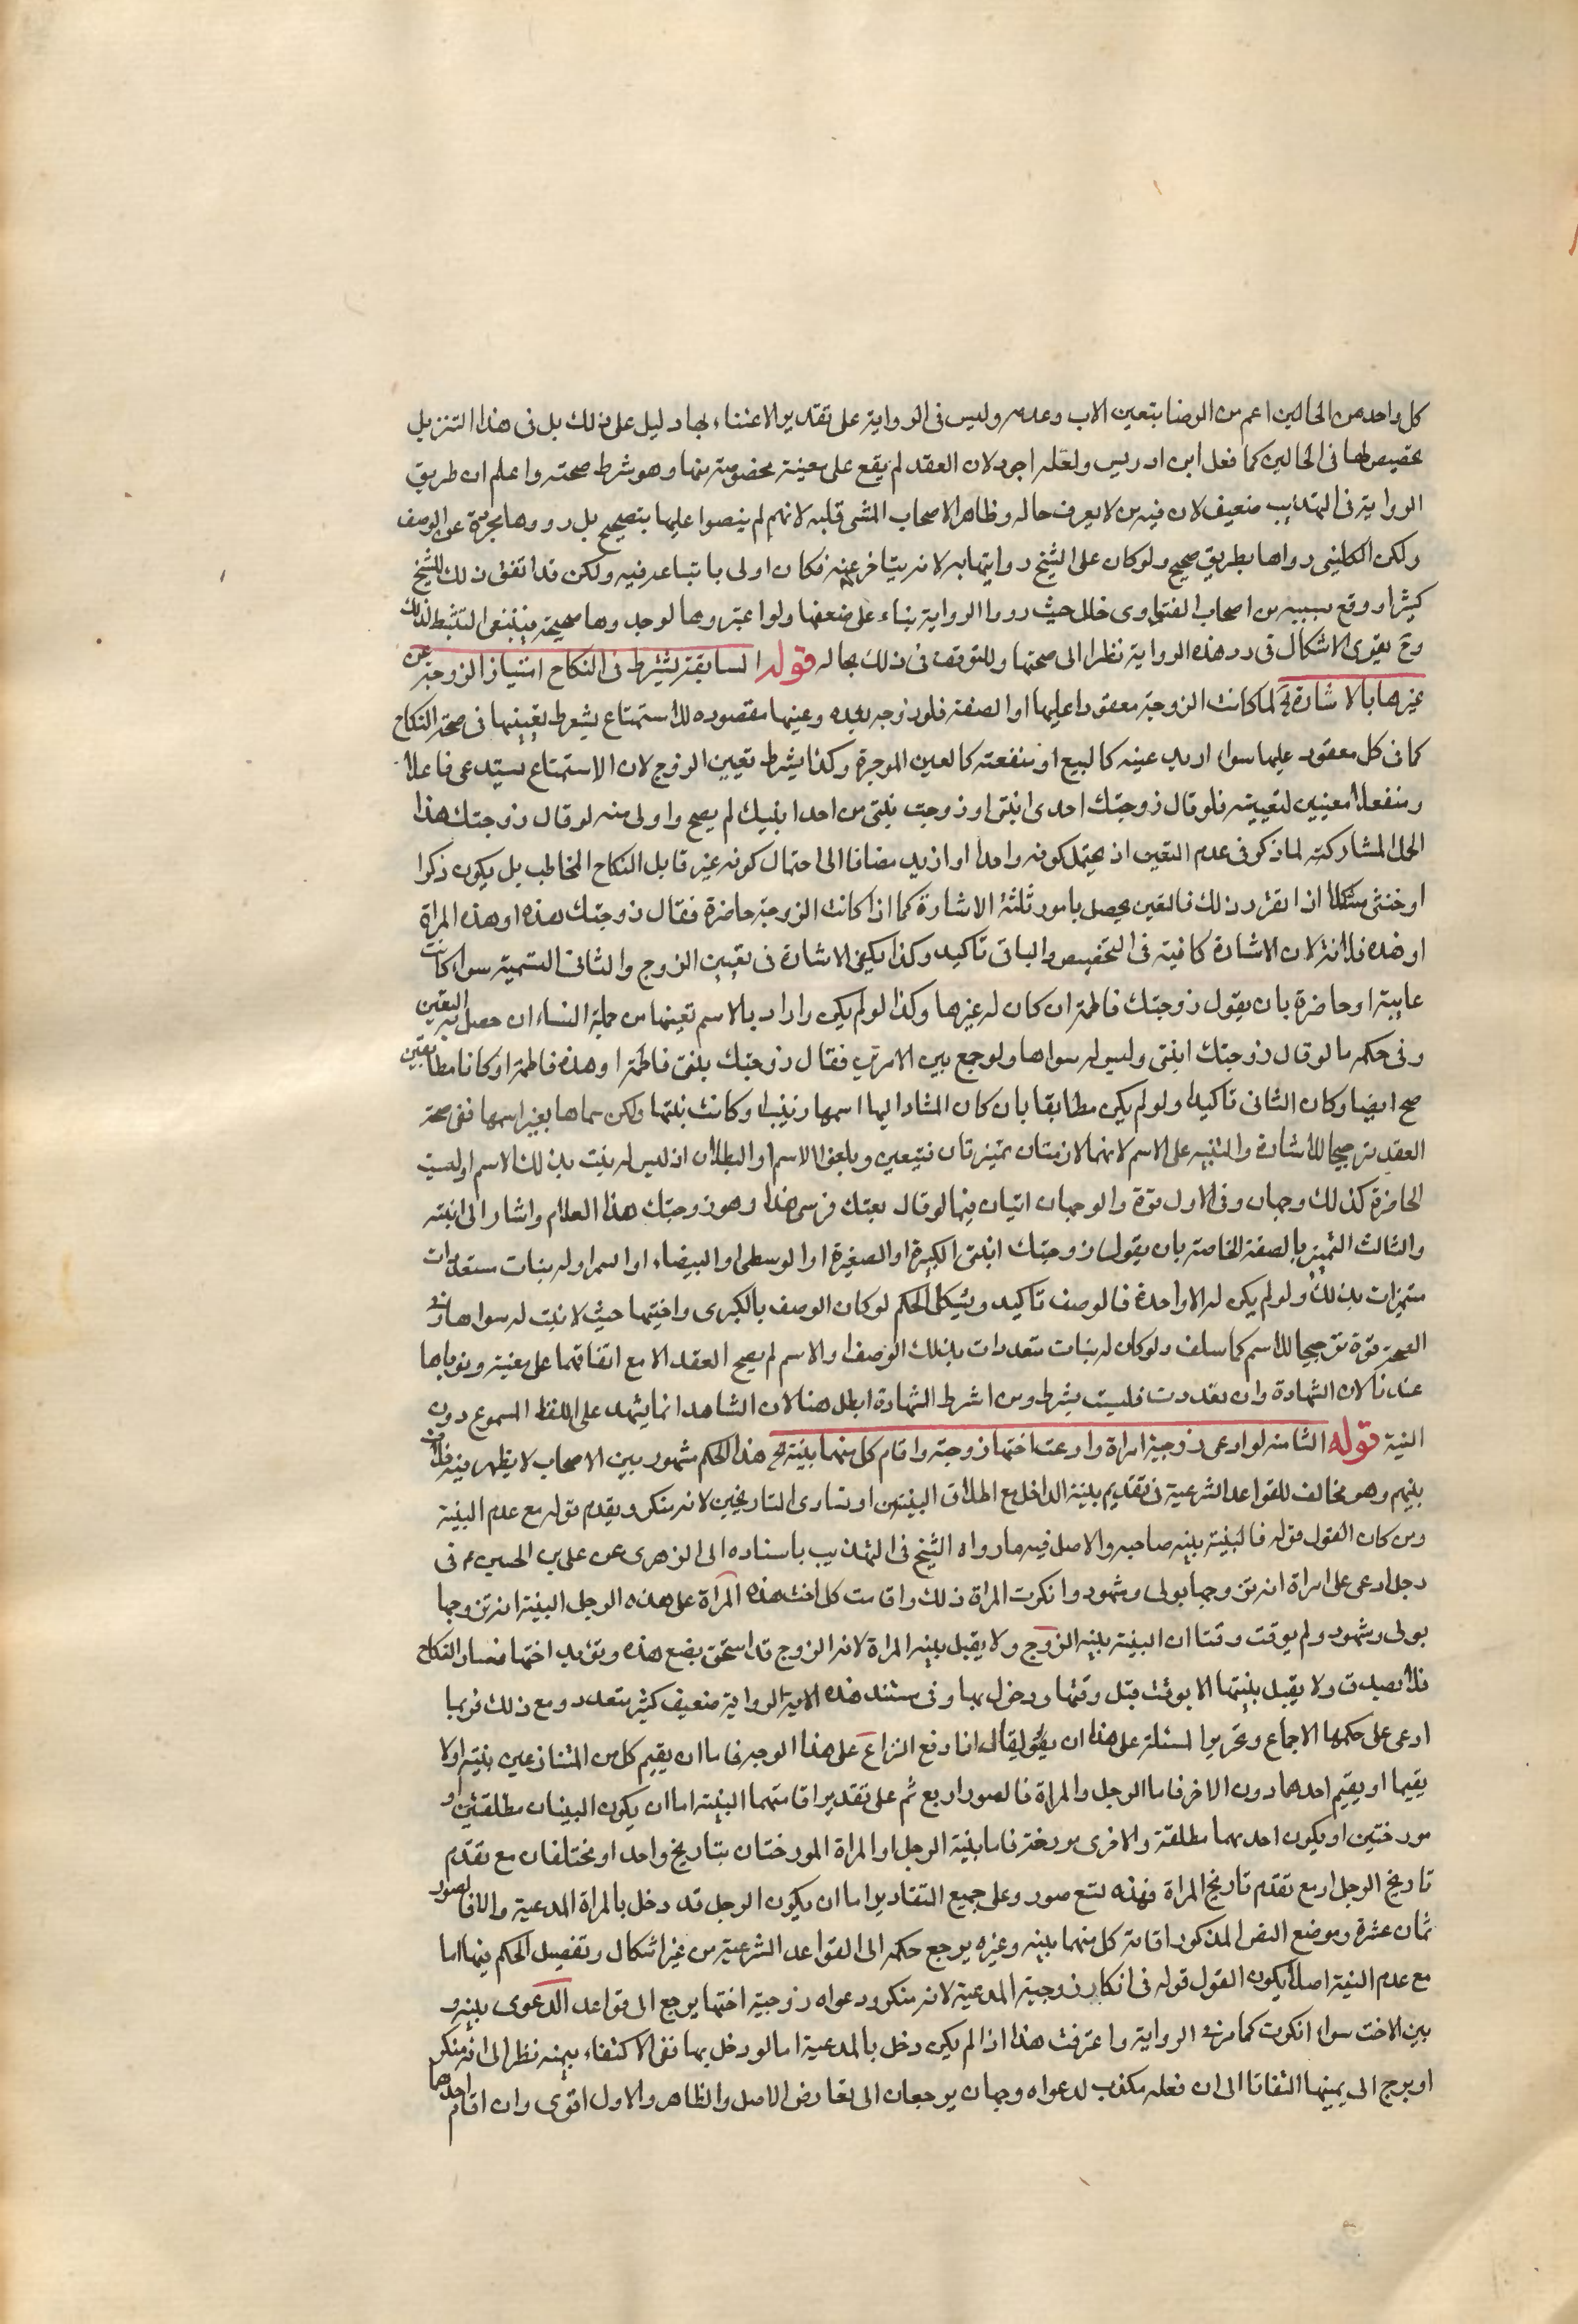 كل واحد من الحالين اعم من الرضا بتعين الاب وعدمه وليس فى الرواية على تقدير الاعتناء بها دليل على ذلك بل فى هذا التنزيل
تخصيص لها فى الحالين كما فعل ابن ادريس ولعله اجود لان العقد لم يقع على معينة مخصوصة منها وهو شرط صحته واعلم ان طريق
الرواية فى التهذيب ضعيف لان فيه من لا يعرف حاله وظاهر الاصحاب المشى قلبه لانهم لم ينصوا عليها بتصحيح بل ردوها مجردة عن الوصف
ولكن الكلينى رواها بطريق صحيح ولو كان على الشيخ روايتها به لانه يتاخر عنه فكان اولى باتباعه فيه ولكن قد اتفق ذلك للشيخ
كثيرا ووقع بسببه من اصحاب الفتاوى خلل حيث ردوا الرواية بناء على ضعفها ولو اعتبروها لوجدوها صحيحة فينبغى التثبط لذلك
وح يقوى الاشكال فى رد هذه الرواية نظرا الى صحتها وللتوقف فى ذلك مجاله قوله السابقة يشترط فى النكاح امتياز الزوجة عن
غيرها بالاشارة الخ لما كانت الزوجة معقودا عليها او الصفة فلو زوجه بعيده وعينها مقصوده للاستمتاع يشترط تعيينها فى صحة النكاح
كما فى كل معقود عليها سواء اريد عينه كالبيع او منفعته كالعين الموجرة وكذا يشترط تعيين الزوج لان الاستمتاع يستدعى فاعلا
ومنفعلا معينين لتعيينه فلو قال زوجتك احدى ابنتى او زوجت بنتى من احد ابنيك لم يصح واولى منه لو قال زوجتك هذا
الحمل المشاركته لما ذكر فى عدم التعين اذ يحتمل كونه واحدا او ازيد مضافا الى احتمال كونه غير قابل النكاح المخاطب بل يكون ذكرا
او خنثى مشكلا اذا تقرر ذلك فالتعين يحصل بامور ثلثة الاشارة كما اذا كانت الزوجة حاضرة فقال زوجتك هذه او هذه المراة
او هذه فلانة لان الاشارة كافية فى التخصيص والباقى تاكيد وكذا يكفى الاشارة فى تعيين الزوج والثانى التسمية سواء كانت
غايبة او حاضرة بان يقول زوجتك فاطمة ان كان له غيرها وكذا لو لم يكن واراد بالاسم تعينها من جملة النساء ان حصل به التعين
وفى حكمه ما لو قال زوجتك ابنتى وليس له سواها ولو جمع بين الامرين فقال زوجتك بنتى فاطمة او هذه فاطمة او كانا مطابقين
صح ايضا وكان الثانى تاكيدا ولو لم يكن مطابقا بان كان المشار اليها اسمها زينب او كانت بنتها ولكن سماها بغير اسمها ففى صحة
العقد ترجيحا للاشارة والتنبيه على الاسم لانهما لازمتان تميزتان فتيعين ويلغوا الاسم او البطلان اذ ليس له بنت بذلك الاسم اوليست
الحاضرة كذلك وجهان وفى الاول قوة والوجهان اتيان فيما لو قال بعتك فرسى هذا وهو زوجتك هذا الغلام واشار الى ابنته
والثالث التميز بالصفة الخاصة بان يقول زوجتك ابنتى الكبيرة او الصغيرة او الوسطى او البيضاء او السمرا وله بنات متعددات
متميزات بذلك ولو لم يكن له الا واحدة فالوصف تاكيد ويشكل الحكم لو كان الوصف بالكبرى واختيها حيث لا بنت له سواها وفى
الصحة قوة ترجيحا للاسم كما سلف ولو كان له بنات متعددات بذلك الوصف او الاسم لم يصح العقد الا مع اتفاقهما على معينة ونوياها
عندنا لان الشهادة وان تعددت فليست بشرط ومن اشترط الشهادة ابطل هنا لان الشاهد انما يشهد على اللفظ المسموع دون
النية قوله الثامنة لو ادعى زوجية امراة وادعت اختها زوجته واقام كل منهما بينة الخ هذا الحكم مشهور بين الاصحاب لا يظهر فيه خلاف
بينهم وهو مخالف للقواعد الشرعية فى تقديم بينة الداخل مع اطلاق البينتين او تساوى التاريخين لانه منكر ويقدم قوله مع عدم البينة
ومن كان القول قوله فالبينة بينه صاحبه والاصل فيه ما رواه الشيخ فى التهذيب باسناده الى الزهرى عن على بن الحسين ع فى
رجل ادعى على امراة انه تزوجها بولى وشهود وانكرت المراة ذلك واقامت كل اخت هذه المراة على هذه الرجل البينة انه تزوجها
بولى وشهود ولم يوقت وقتا ان البينة بينة الزوج ولا يقبل بينة المراة لانه الزوج قد استحق بضع هذه وتؤيد اختها فساد النكاح
فلا تصدق ولا يقبل بينتها الا بوقت قبل وقتها ودخول بها وفى مستند هذه الاية الرواية ضعيف كثير متعدد ومع ذلك فربما
ادعى على حكمها الاجماع وتحرير المسئلة على هذا ان يقول يقال اذا وقع النزاع على هذا الوجه فاما ان يقيم كل من المتنازعين بينة اولا
يقيما او يقيم احدهما دون الاخر فاما الرجل والمراة فالصور اربع ثم على تقدير اقامتهما البينة اما ان يكون البينان مطلقتين او
مورختين او يكون احديهما مطلقة والاخرى مورخة فاما بنية الرجل او المراة المورختان بتاريخ واحد او مختلفان مع تقدم
تاريخ الرجل او مع تقدم تاريخ المراة فهذه تسع صور وعلى جميع التقادير اما ان يكون الرجل قد دخل بالمراة المدعية والا فالصور
ثمان عشرة وموضع النص المذكور اقامة كل منهما بينه وغيره يرجع حكمه الى القواعد الشرعية من غير اشكال وتفصيل الحكم فيها اما
مع عدم البينة اصلا يكون القول قوله فى انكار زوجية المدعية لانه منكر ودعواه زوجية اختها يرجع الى قواعد الدعوى بينه و
بين الاخت سواء انكرت كما مر فى الرواية واعترفت هذا اذا لم يكن دخل بالمدعية اما لو دخل بها ففى الاكتفاء بيمينه نظرا الى انه منكر
او يرجح الى يمينها التفاتا الى ان فعله مكذب لدعواه وجهان يرجعان الى تعارض الاصل والظاهر والاول اقوى وان اقام احدهما